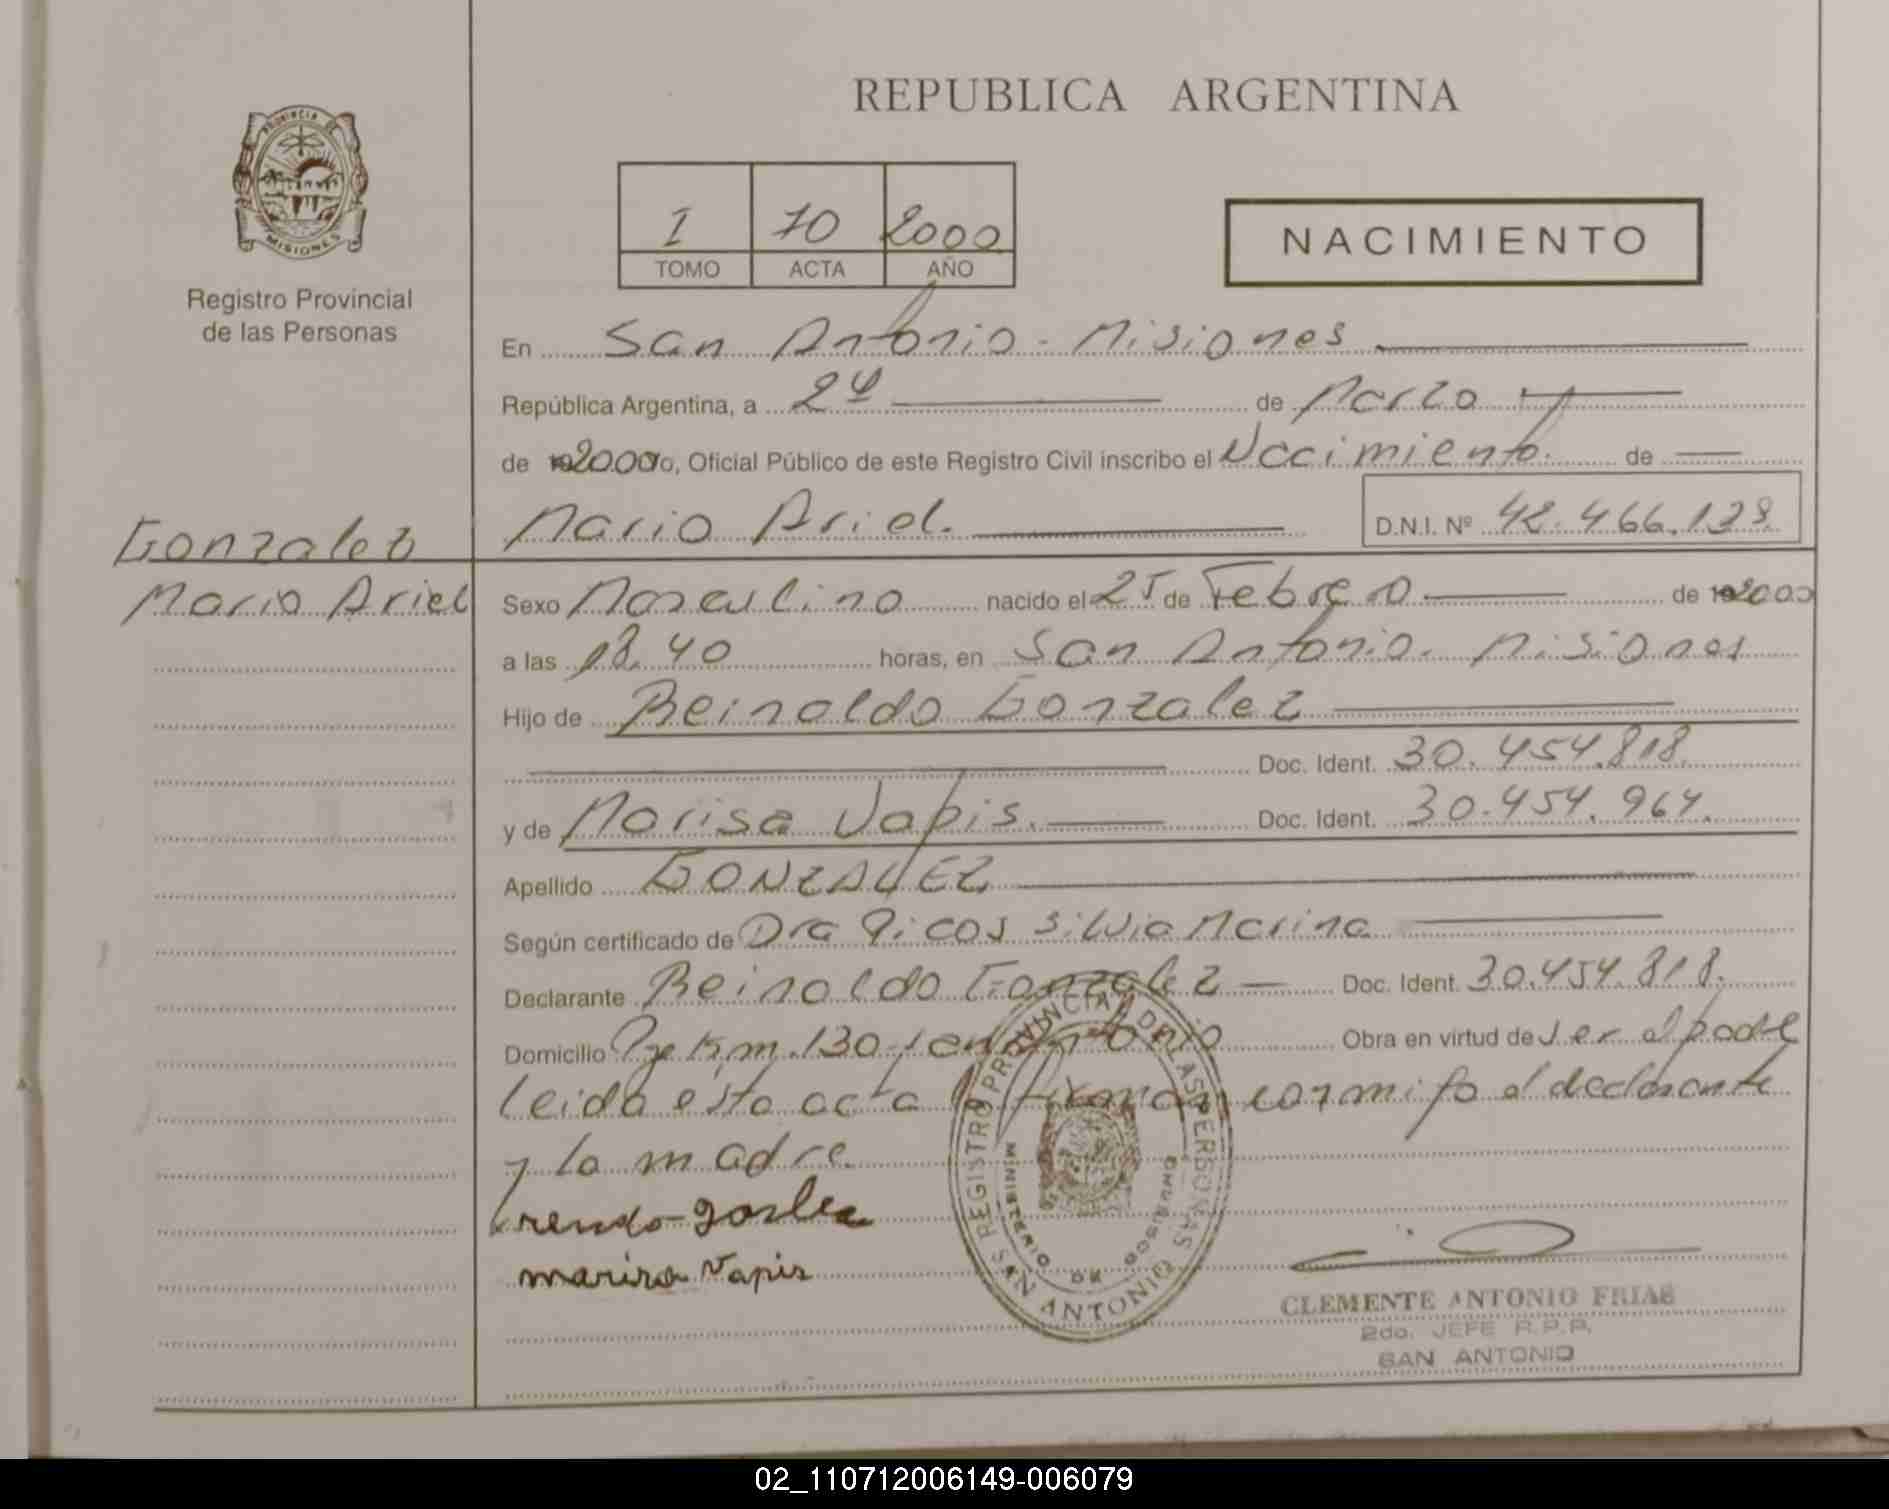 REPUBLICA ARGENTINA
PROVINCIA DE
MISIONES
Registro Provincial
de las Personas
I 70 2000
TOMO ACTA AÑO
NACIMIENTO
En San Antonio - Misiones
República Argentina, a 24 de Marzo
de 2000 yo, Oficial Público de este Registro Civil inscribo el Nacimiento de
Mario Ariel. D.N.I. Nº 42.466.139.
Gonzalez
Mario Ariel
Sexo Masculino nacido el 25 de Febrero de 2000
a las 18.40 horas, en San Antonio. Misiones
Hijo de Reinaldo Gonzalez
Doc. Ident. 30.454.818.
y de Marisa Vapis. Doc. Ident. 30.454.964.
Apellido GONZALEZ
Según certificado de Dra Picos Silvia Marina
Declarante Reinaldo Gonzalez Doc. Ident. 30.454.818.
Domicilio Km. 130 San Antonio Obra en virtud de ser el padre
leida esta acta firman conmigo el declarante
y la madre
marisa Vapis
REGISTRO PROVINCIAL DE LAS PERSONAS
MINISTERIO DE GOBIERNO
SAN ANTONIO
CLEMENTE ANTONIO FRIAS
2do. JEFE R.P.P.
SAN ANTONIO
02_110712006149-006079